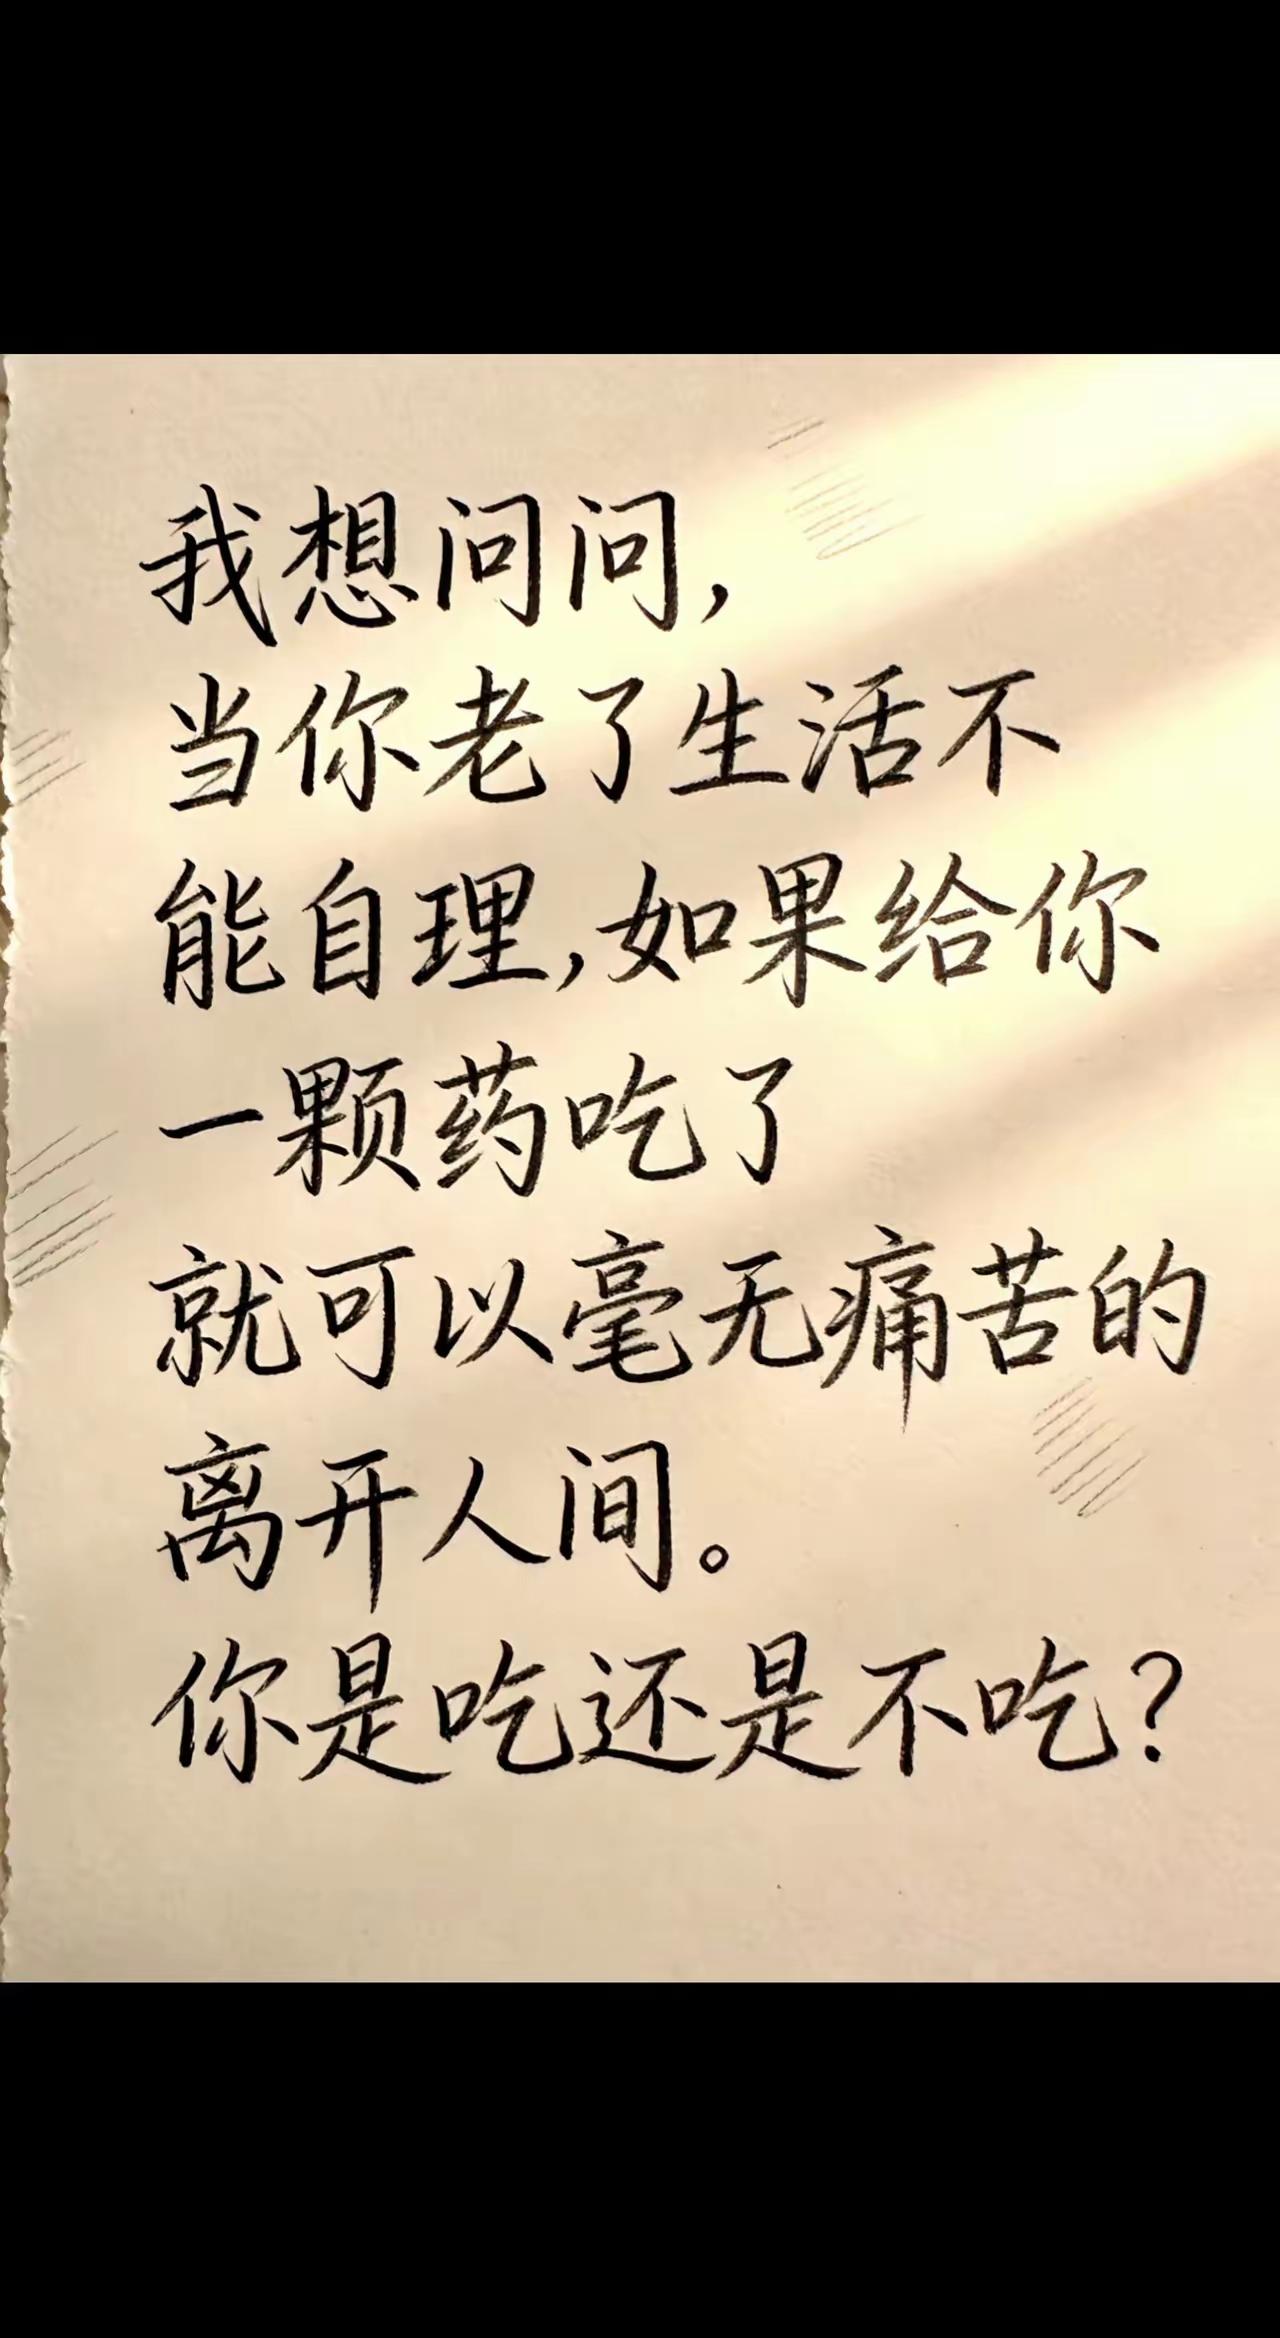 我想问问，
当你老了生活不
能自理，如果给你
一颗药吃了
就可以毫无痛苦的
离开人间。
你是吃还是不吃？